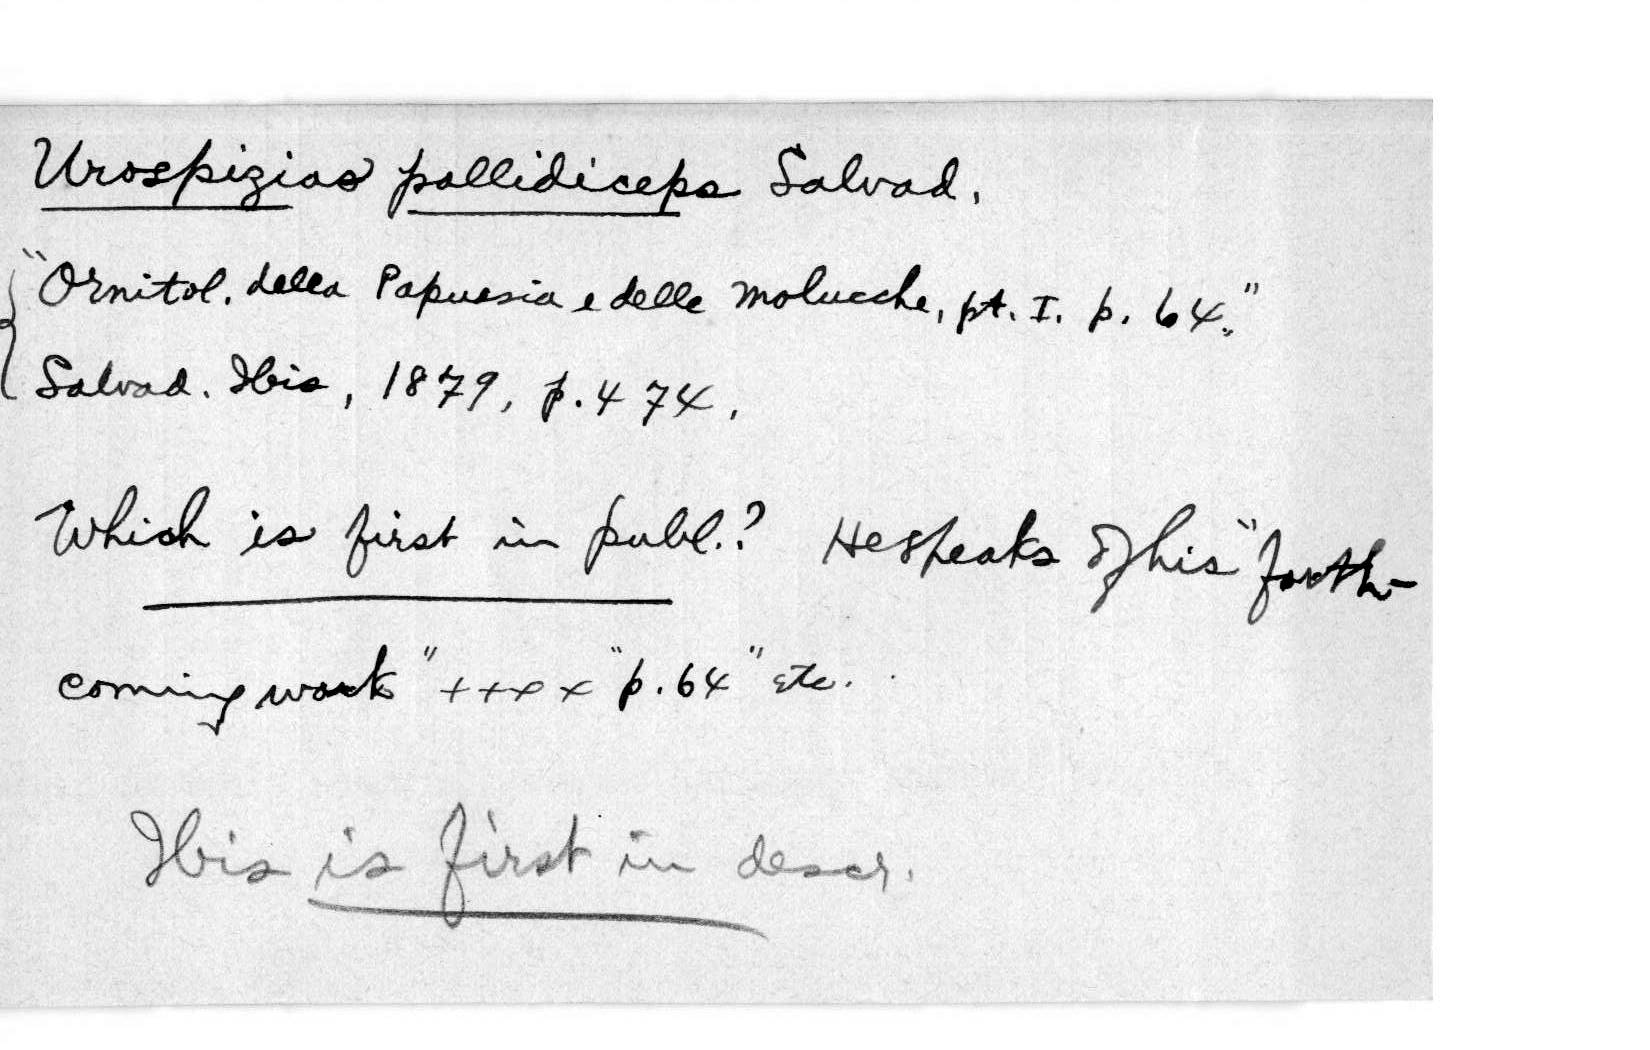 Urospizias pallidiceps Salvad.
"Ornitol. della Papuasia e delle Molucche, pt. I. p. 64."
Salvad. Ibis, 1879, p. 474.
Which is first in publ.? He speaks of his "forth-
coming work" ++++ "p. 64" etc.
Ibis is first in descr.